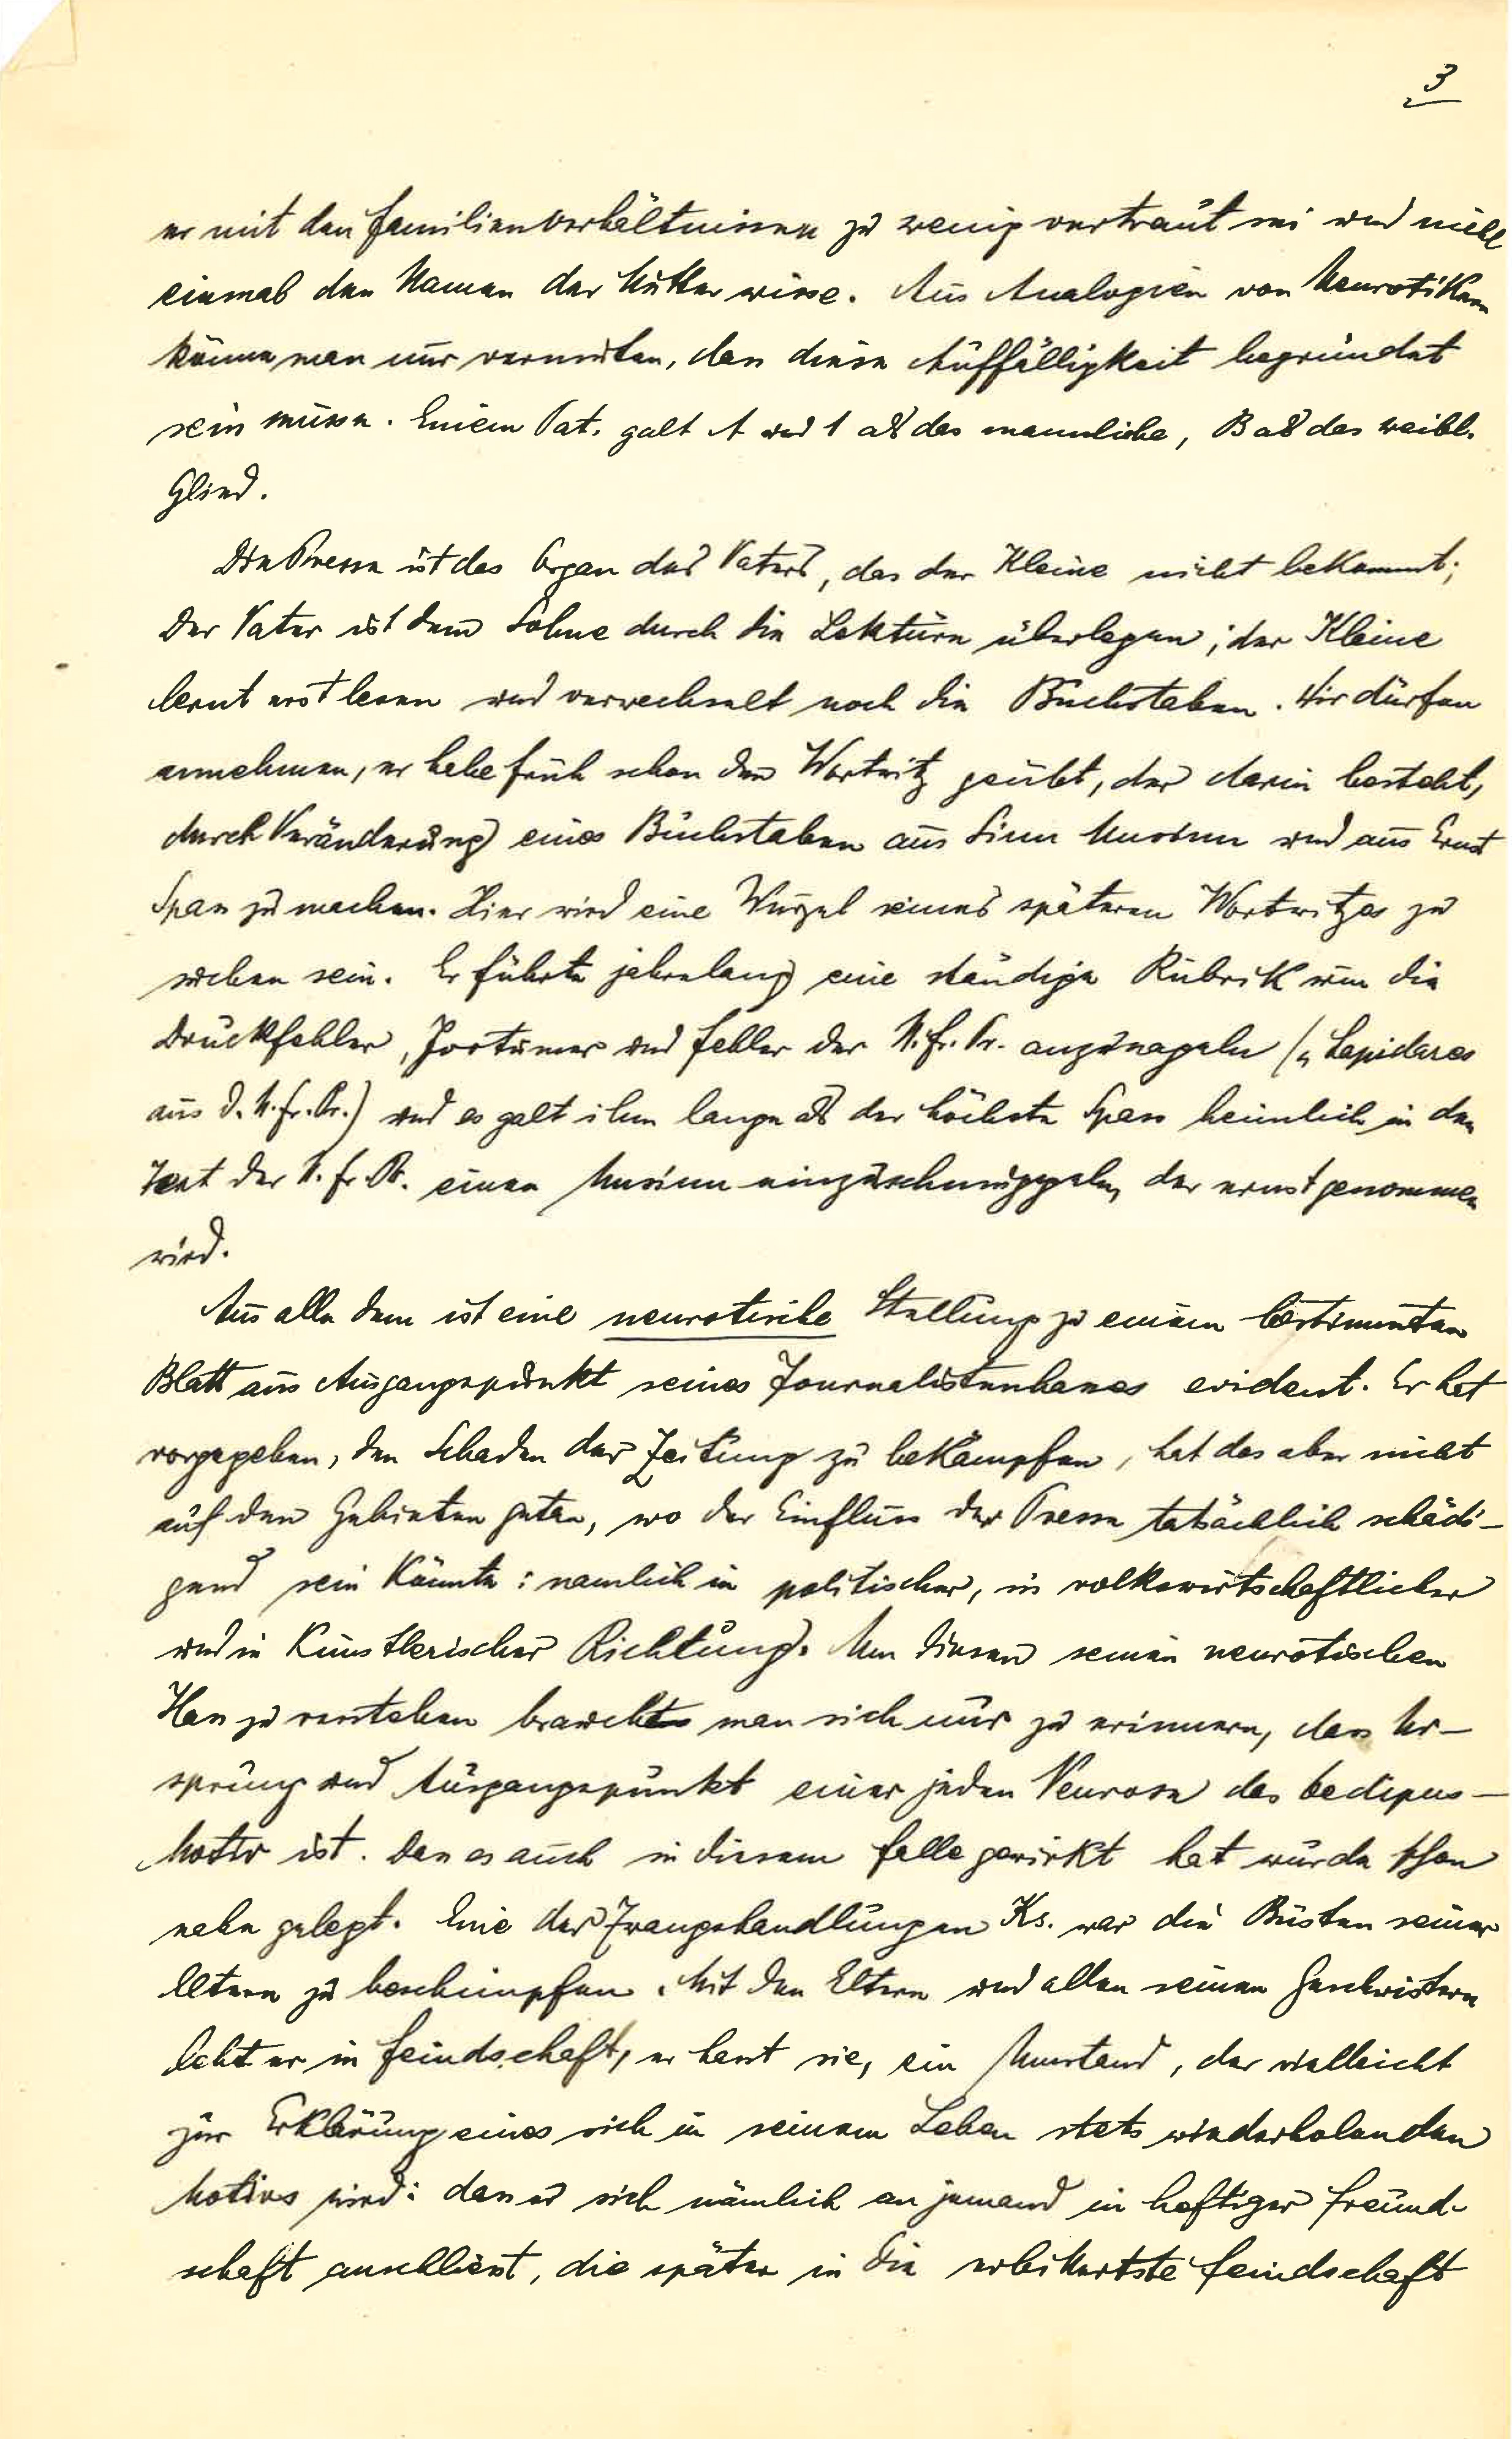 3
er mit den Familienverhältnissen zu wenig vertraut sei und nicht
einmal den Namen der Mutter wisse. Aus Analogien von Neurotikern
könne man nur vermuten, dass diese Auffälligkeit begründet
sein müsse. Einem Pat. galt A und 1 als das mannliche, B als das weibl.
Glied.
Die Presse ist das Organ des Vaters, das der Kleine nicht bekommt;
Der Vater ist dem Sohne durch die Lektüre überlegen; der Kleine
lernt erst lesen und verwechselt noch die Buchstaben. Wir dürfen
annehmen, er habe früh schon den Wortwitz geübt, der darin besteht,
durch Veränderung eines Buchstaben aus Sinn Unsinn und aus Ernst
Spass zu machen. Hier wird eine Wurzel seines späteren Wortwitzes zu
suchen sein. Er führte jahrelang eine ständige Rubrik um die
Druckfehler, Irrtümer und Fehler der N. fr. Pr. anzunageln („Lapidares
aus d. N. fr. Pr.) und es galt ihm lange als der höchste Spass heimlich in den
Text der N. fr. Pr. einen Unsinn einzuschmuggeln, der ernst genommen
wird.
Aus alle dem ist eine neurotische Stellung zu einem bestimmten
Blatt aus Ausgangspunkt seines Journalistenhasses evident. Er hat
vorgegeben, den Schaden der Zeitung zu bekämpfen, hat das aber nicht
auf den Gebieten getan, wo der Einfluss der Presse tatsächlich schädi-
gend sein könnte: namlich in politischer, in volkswirtschaftlicher
und in künstlerischer Richtung. Um diesen seinen neurotischen
Hass zu verstehen braucht man sich nur zu erinnern, dass Ur-
sprung und Ausgangspunkt einer jeden Neurose das Oedipus-
Motiv ist. Dass es auch in diesem Falle gewirkt hat wurde schon
nahe gelegt. Eine der Zwangshandlungen Ks. war die Büsten seiner
Eltern zu beschimpfen. Mit den Eltern und allen seinen Geschwistern
lebt er in Feindschaft, er hasst sie, ein Umstand, der vielleicht
zur Erklärung eines sich in seinem Leben stets wiederholenden
Motivs wird: dass er sich nämlich an jemand in heftiger Freund-
schaft anschliesst, die später in die erbittertste Feindschaft